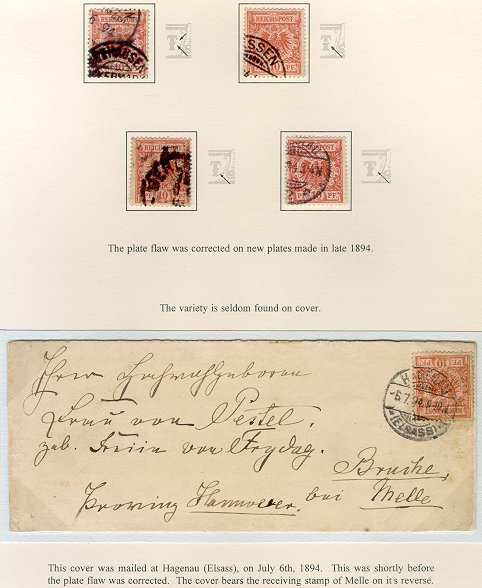 REICHSPOST
10
T
REICHSPOST
SSEN
PF.
T
REICHSPOST
10
T
T
The plate flaw was corrected on new plates made in late 1894.
The variety is seldom found on cover.
Ihrer Hochwohlgeboren
Frau von Pestel.
geb. Freiin von Frydag.
Bruche,
Provinz Hannover, bei Melle
10
-6.7.94
(ELSASS)
This cover was mailed at Hagenau (Elsass), on July 6th, 1894. This was shortly before
the plate flaw was corrected. The cover bears the receiving stamp of Melle on it's reverse.